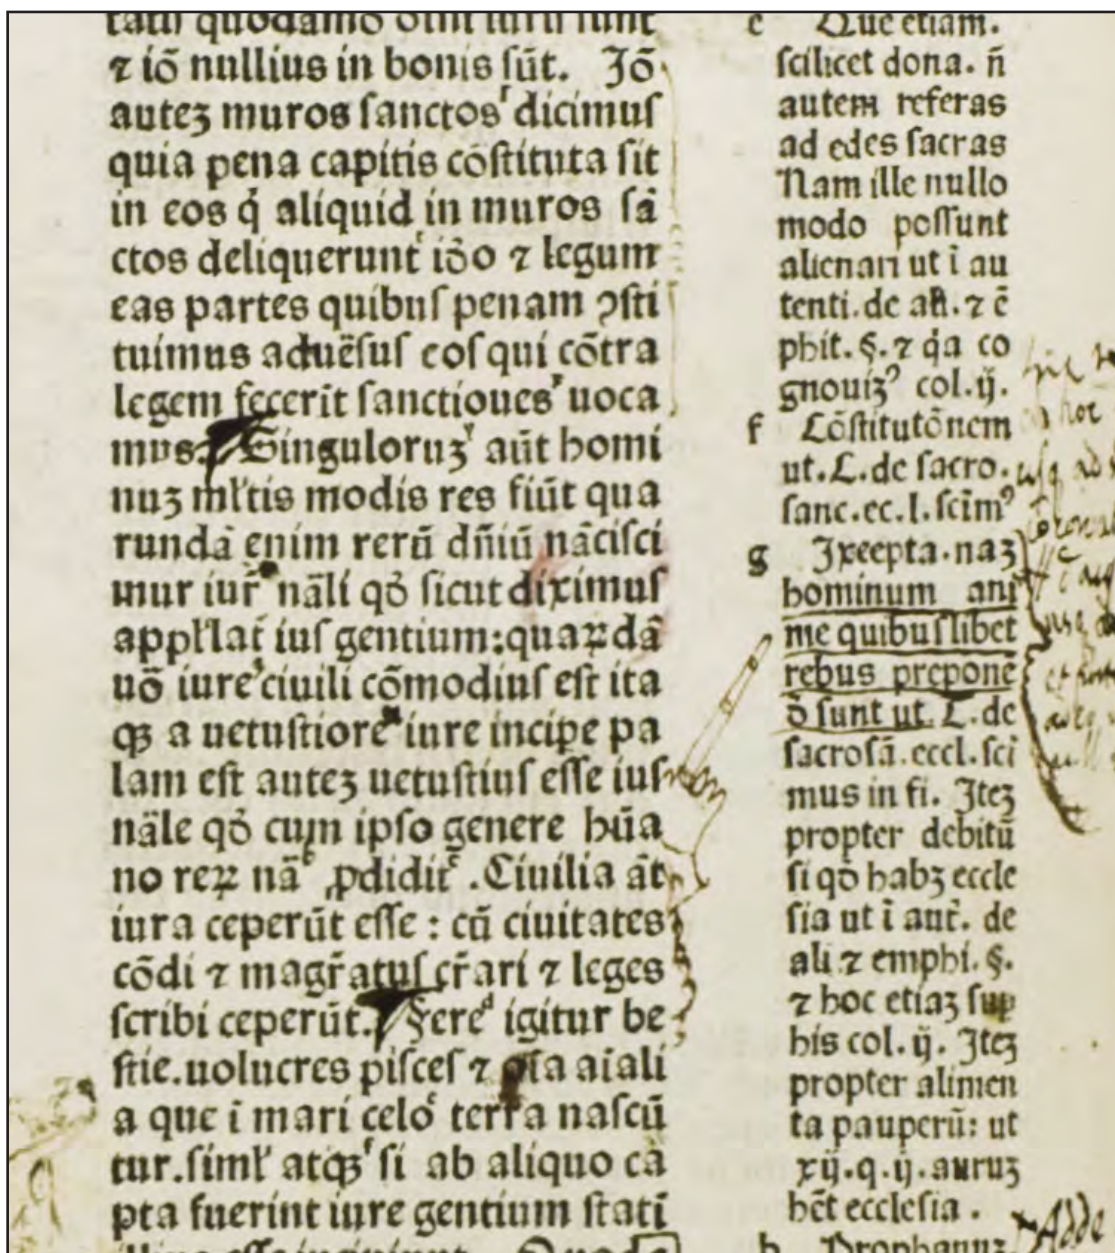 ⁊ iō nullius in bonis ſūt. Jō
autez muros ſanctos dicimuſ
quia pena capitis cōſtituta ſit
in eos q̇ aliquid in muros ſā
ctos deliquerunt iō̄o ⁊ legum
eas partes quibuſ penam ꝯſti
tuimus aduēſus eoſ qui cōtra
legem fecerīt ſanctioues uoca
mus. Singuloruꝫ aūt homi
nuꝫ ml'tis modis res fiūt qua
rundā enim rerū dn̄iū nāciſci
mur iur̄ nāli qȱ ſicut diximuſ
appl'lat̄ iuſ gentium: quaꝝdā
uō iure ciuili cōmodiuſ eſt ita
qꝫ a uetuſtiore iure incipe pa
lam eſt auteꝫ uetuſtiuſ eſſe iuſ
nāle qȱ cum ipſo genere hūa
no reꝝ nā ꝓdidit̄. Ciuilia āt
iura ceperūt eſſe : cū ciuitates
cōdi ⁊ magr̄atuſ cr̄ari ⁊ leges
ſcribi ceperūt. Fere igitur be
ſtie. uolucres piſceſ ⁊ oīa aīali
a que ī mari celo terra naſcū
tur. ſiml' atqꝫ ſi ab aliquo cā
pta fuerint iure gentium ſtatī
e Que etiam.
ſcilicet dona. n̄
autem referas
ad edes ſacras
Nam ille nullo
modo poſſunt
alienari ut ī au
tenti. de ali. ⁊ ē
phit. §. ⁊ q̇a co
gnouiꝫꝰ col. ij.
f Cōſtitutōnem
ut. C. de ſacro.
ſanc. ec. l. ſcīmꝰ
g Jxeepta. naꝫ
hominum ani
me quibuſlibet
rebus prepone
ō ſunt ut. C. de
ſacroſā. eccl. ſci
mus in fi. Iteꝫ
propter debitū
ſi qȱ habꝫ eccle
ſia ut ī aut̄. de
ali ⁊ emphi. §.
⁊ hoc etiaꝫ ſup
his col. ij. Iteꝫ
propter alimen
ta pauperū: ut
xij. q. ij. auruꝫ
hēt eccleſia .
h Prophanuꝫ
Adde